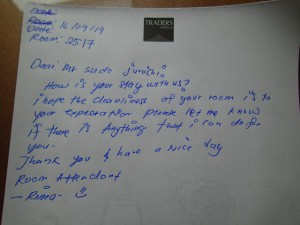 TRADERS
Date: 16/09/19
Room: 2517
Dear: Mr sudo Junichi,
How is your stay with us?
i hope the cleanliness of your room is to
your expectation please let me know
if there is Anything that i can do for
you-
Thank you & have a nice day
Room Attendant
- Rima -